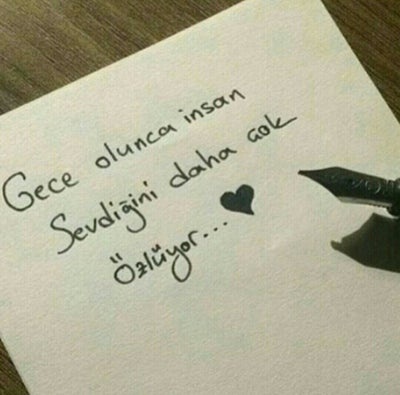 Gece olunca insan
Sevdiğini daha çok
Özlüyor...